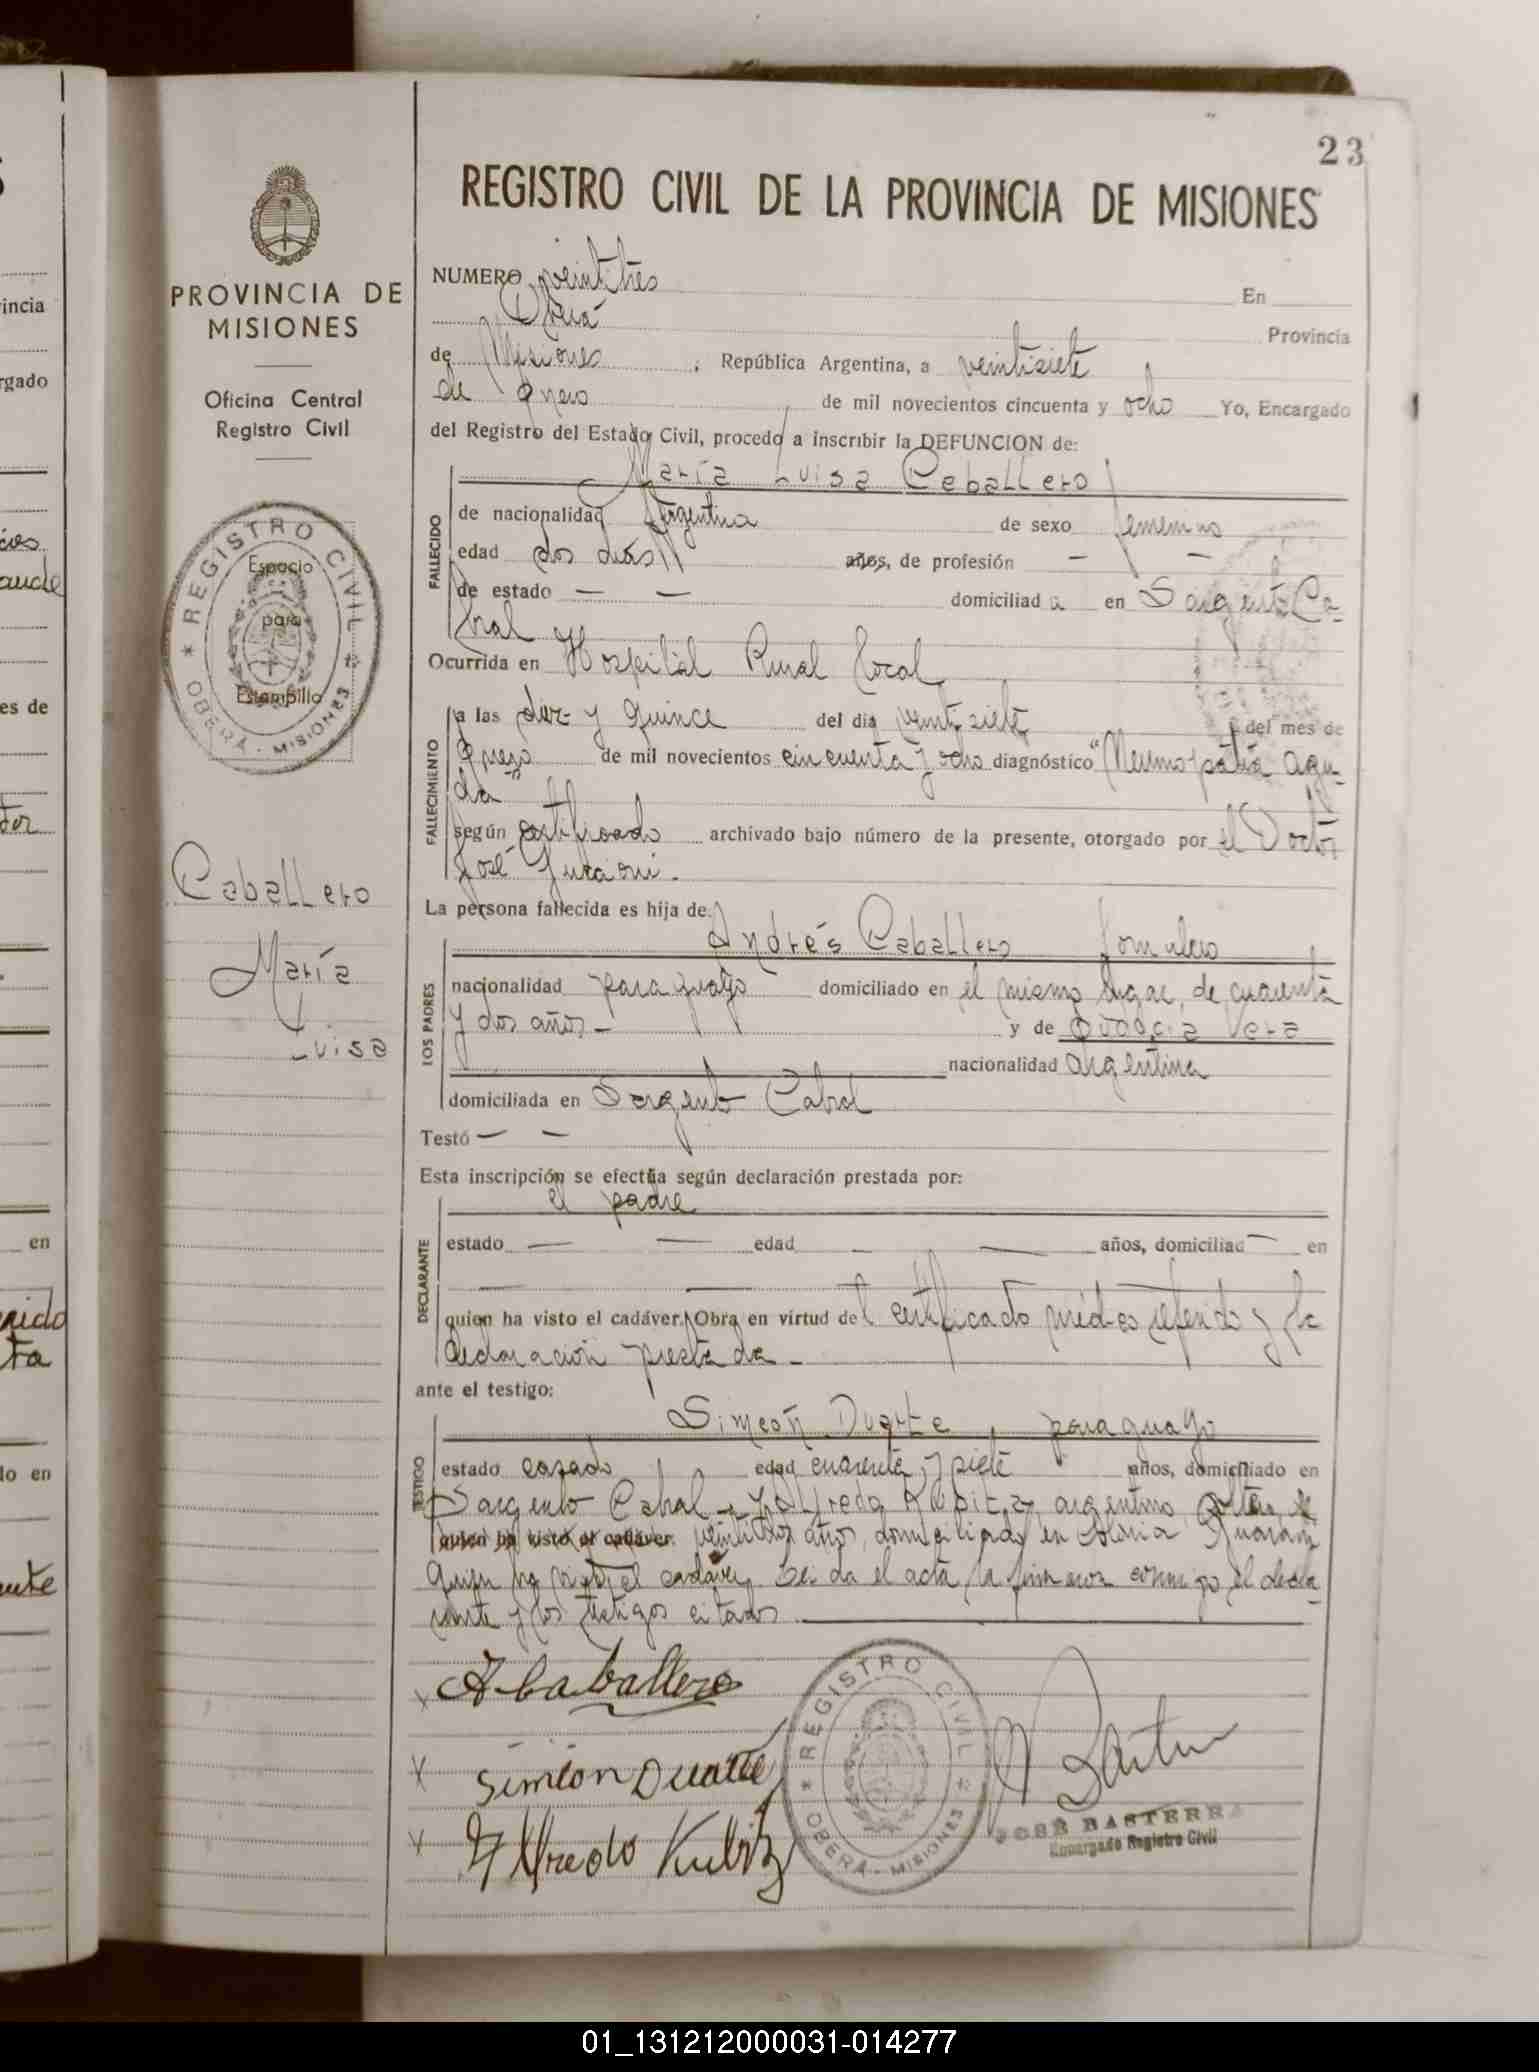 23
REGISTRO CIVIL DE LA PROVINCIA DE MISIONES
PROVINCIA DE
MISIONES
Oficina Central
Registro Civil
REGISTRO CIVIL
OBERÁ - MISIONES
Espacio
para
Estampillo
Caballero
María
Luisa
NUMERO veintitrés En
Oberá Provincia
de Misiones ; República Argentina, a veintisiete
de Enero de mil novecientos cincuenta y ocho Yo, Encargado
del Registro del Estado Civil, procedo a inscribir la DEFUNCION de:
María Luisa Caballero
FALLECIDO
de nacionalidad Argentina de sexo femenino
edad dos días años, de profesión — —
de estado — — domiciliad a en Sargento Ca-
bral
Ocurrida en Hospital Rural local
FALLECIMIENTO
a las diez y quince del dia veintisiete del mes de
Enero de mil novecientos cincuenta y ocho diagnóstico "Neumopatía agu-
da"
según certificado archivado bajo número de la presente, otorgado por el Doctor
José
La persona fallecida es hija de:
Andrés Caballero jornalero
LOS PADRES
nacionalidad paraguayo domiciliado en el mismo lugar, de cuarenta
y dos años - y de Vera
nacionalidad argentina
domiciliada en Sargento Cabral
Testó — —
Esta inscripción se efectúa según declaración prestada por:
el padre
DECLARANTE
estado — — edad — — años, domiciliad — en
— —
quien ha visto el cadáver. Obra en virtud del certificado médico referido y la
declaración prestada -
ante el testigo:
Simeón Duarte, paraguayo
TESTIGO
estado casado edad cuarenta y siete años, domiciliado en
Sargento Cabral - y Alfredo argentino, soltero, de
quien ha visto el cadáver. veintidos años, domiciliado en Colonia Guaraní
Quien ha visto el cadáver. Leida el acta la firmaron conmigo el decla-
rante y los testigos citados
A Caballero
Simeon Duarte
Alfredo Kubitz
REGISTRO CIVIL
OBERÁ - MISIONES
JOSÉ BASTERRA
Encargado Registro Civil
incia
rgado
es de
en
lo en
01_131212000031-014277